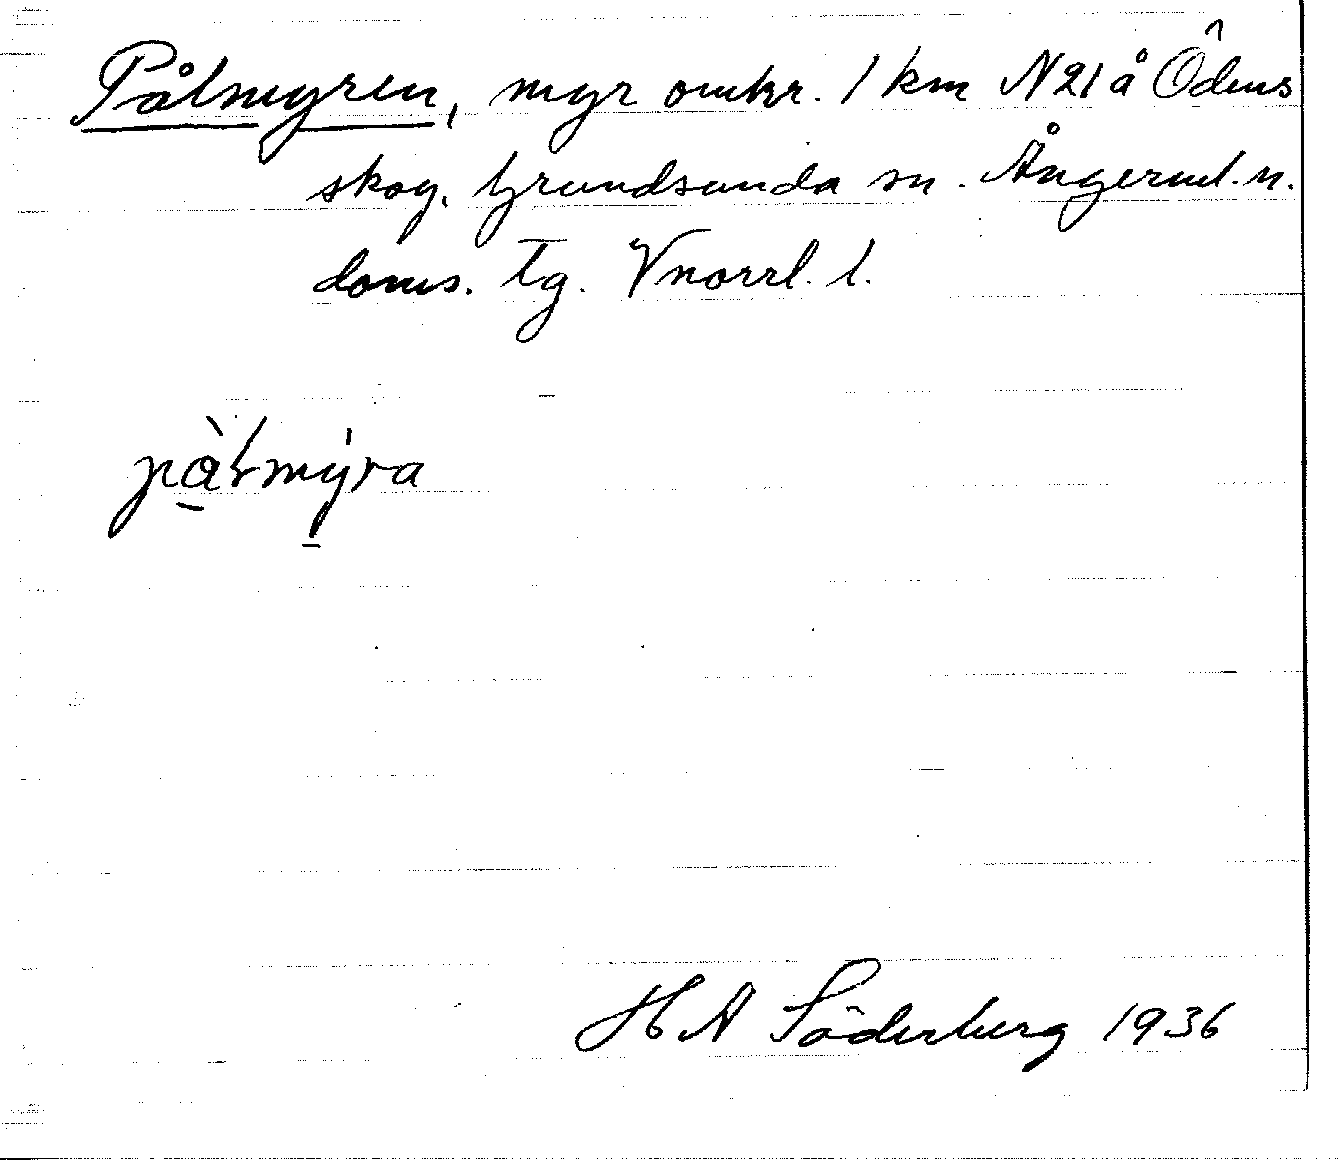 Pålmyren, myr omkr. 1 km N21å Ödens
skog, Grundsunda sn. Ångerml. n.
doms. Tg. Vnorrl. l.
pàlmýra
H A Söderberg 1936